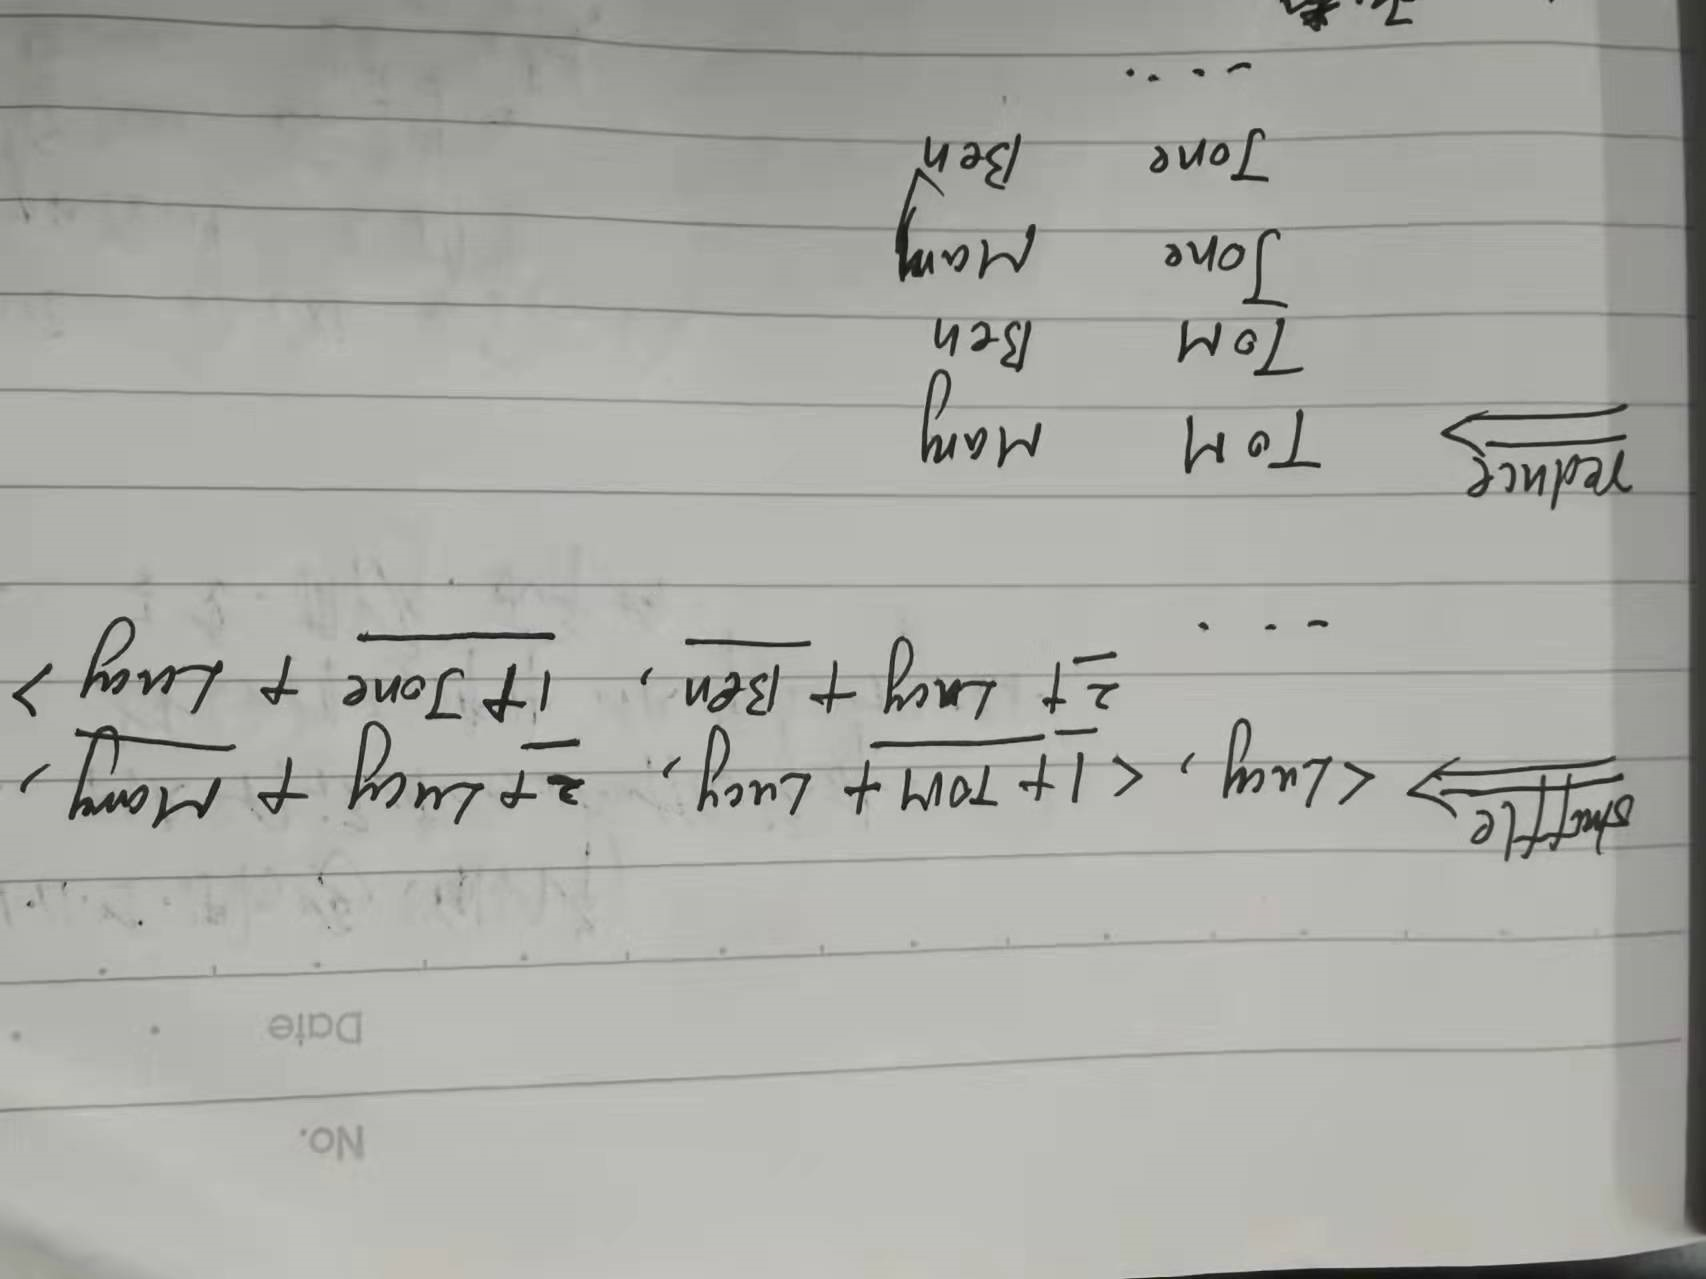 No.
Date
shuffle <Lucy, <1+TOM+Lucy, 2+Lucy+Mary,
2+Lucy+Ben, 1+Jone+Lucy>
...
reduce TOM Mary
TOM Ben
Jone Mary
Jone Ben
....